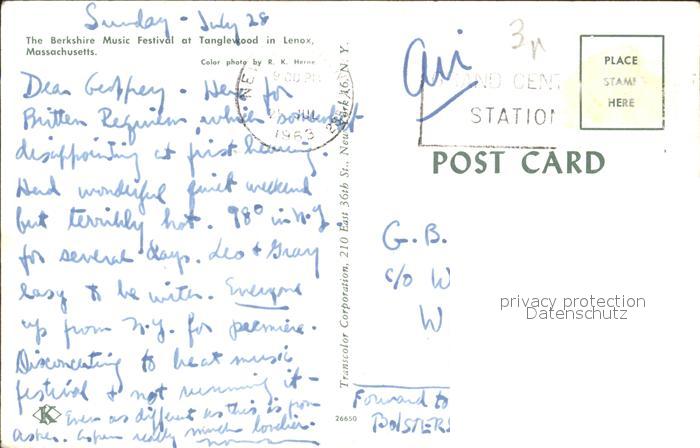 Sunday - July 28
The Berkshire Music Festival at Tanglewood in Lenox,
Massachusetts.
Color photo by R. K. Herne
Dear Geoffrey - Here for
Britten Requiem which somewhat
disappointing at first hearing.
Had wonderful quiet weekend
but terribly hot. 98° in N.Y.
for several days. Leo + Gray
easy to be with. Everyone
up from N.Y. for premiere.
Disconcerting to hear music
festival & not running it -
Even as different as this is from
Aspen. Aspen really much lovelier.
K
Transcolor Corporation, 210 East 36th St., New York 16, N. Y.
26650
9 00 PM
JUL
1963
avi
GRAND CENT
STATION
PLACE
STAMP
HERE
POST CARD
G. B.
c/o W
W
privacy protection
Datenschutz
Forward to
BOLSTER